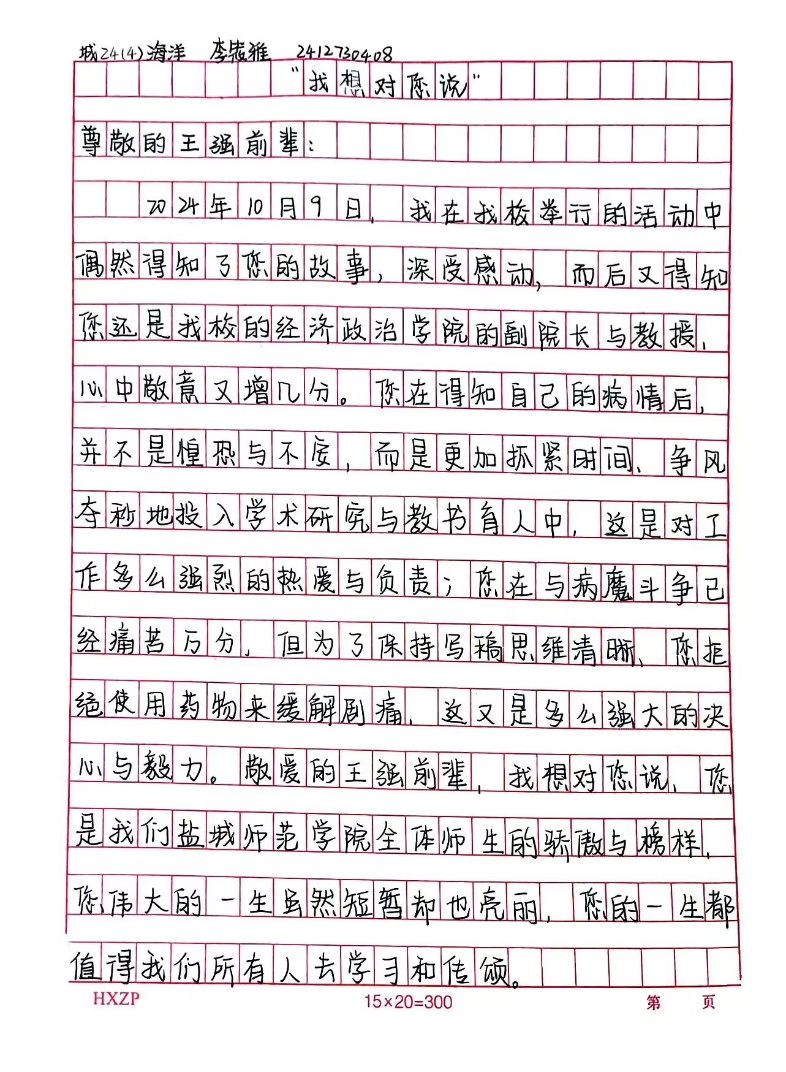 城24(4)海洋 李俊雅 2412730408
“我想对您说”
尊敬的王强前辈：
2024年10月9日，我在我校举行的活动中
偶然得知了您的故事，深受感动，而后又得知
您还是我校的经济政治学院的副院长与教授，
心中敬意又增几分。您在得知自己的病情后，
并不是惶恐与不安，而是更加抓紧时间、争风
夺秒地投入学术研究与教书育人中，这是对工
作多么强烈的热爱与负责；您在与病魔斗争已
经痛苦万分，但为了保持写稿思维清晰、您拒
绝使用药物来缓解剧痛，这又是多么强大的决
心与毅力。敬爱的王强前辈，我想对您说，您
是我们盐城师范学院全体师生的骄傲与榜样，
您伟大的一生虽然短暂却也亮丽，您的一生都
值得我们所有人去学习和传颂。
HXZP 15×20=300 第 页